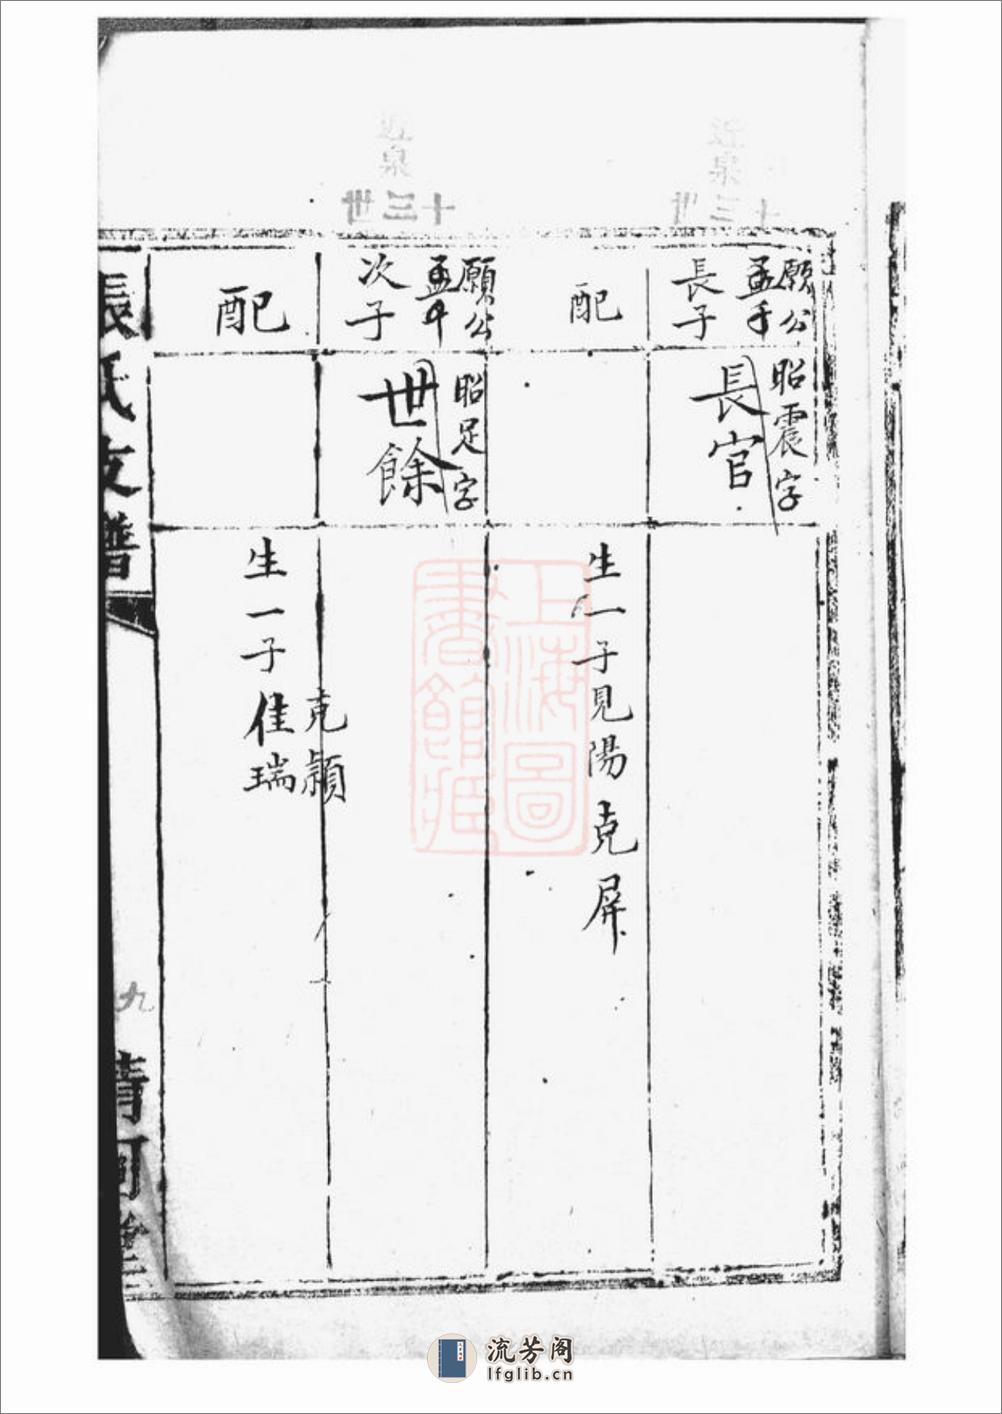 近泉
十三世
願公
孟千
長子
昭震字
長官
配
生一子見陽克屏
近泉
十三世
願公
孟千
次子
昭足字
世餘
配
克穎
生一子佳瑞
張氏支譜
九
清河堂
上海圖
書館藏
流芳阁
lfglib.cn